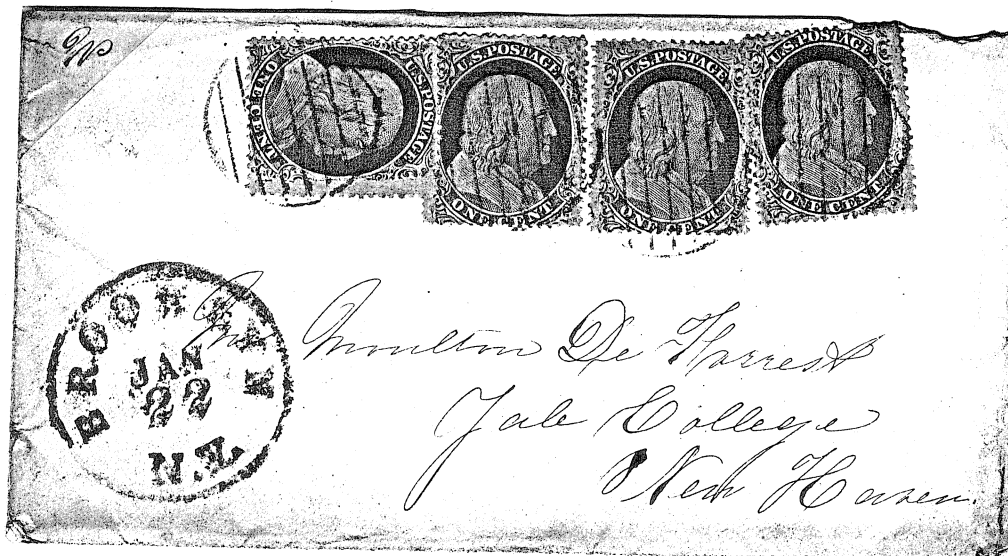 U.S. POSTAGE ONE CENT
U.S. POSTAGE ONE CENT
U.S. POSTAGE ONE CENT
U.S. POSTAGE ONE CENT
BROOKLYN
JAN
22
N.Y.
Mr Moulton De Forrest
Yale College
New Haven.